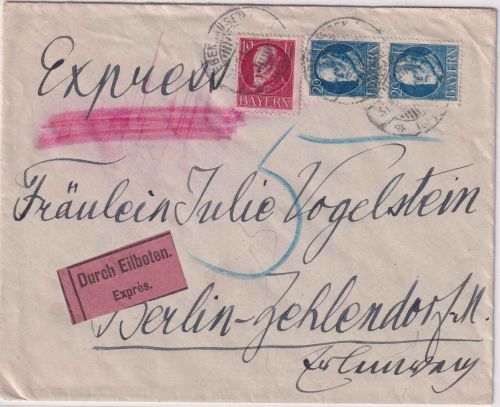 Express
10
BAYERN
20
BAYERN
20
BAYERN
5
Fräulein Julie Vogelstein
Durch Eilboten.
Exprès.
Berlin-Zehlendorf.